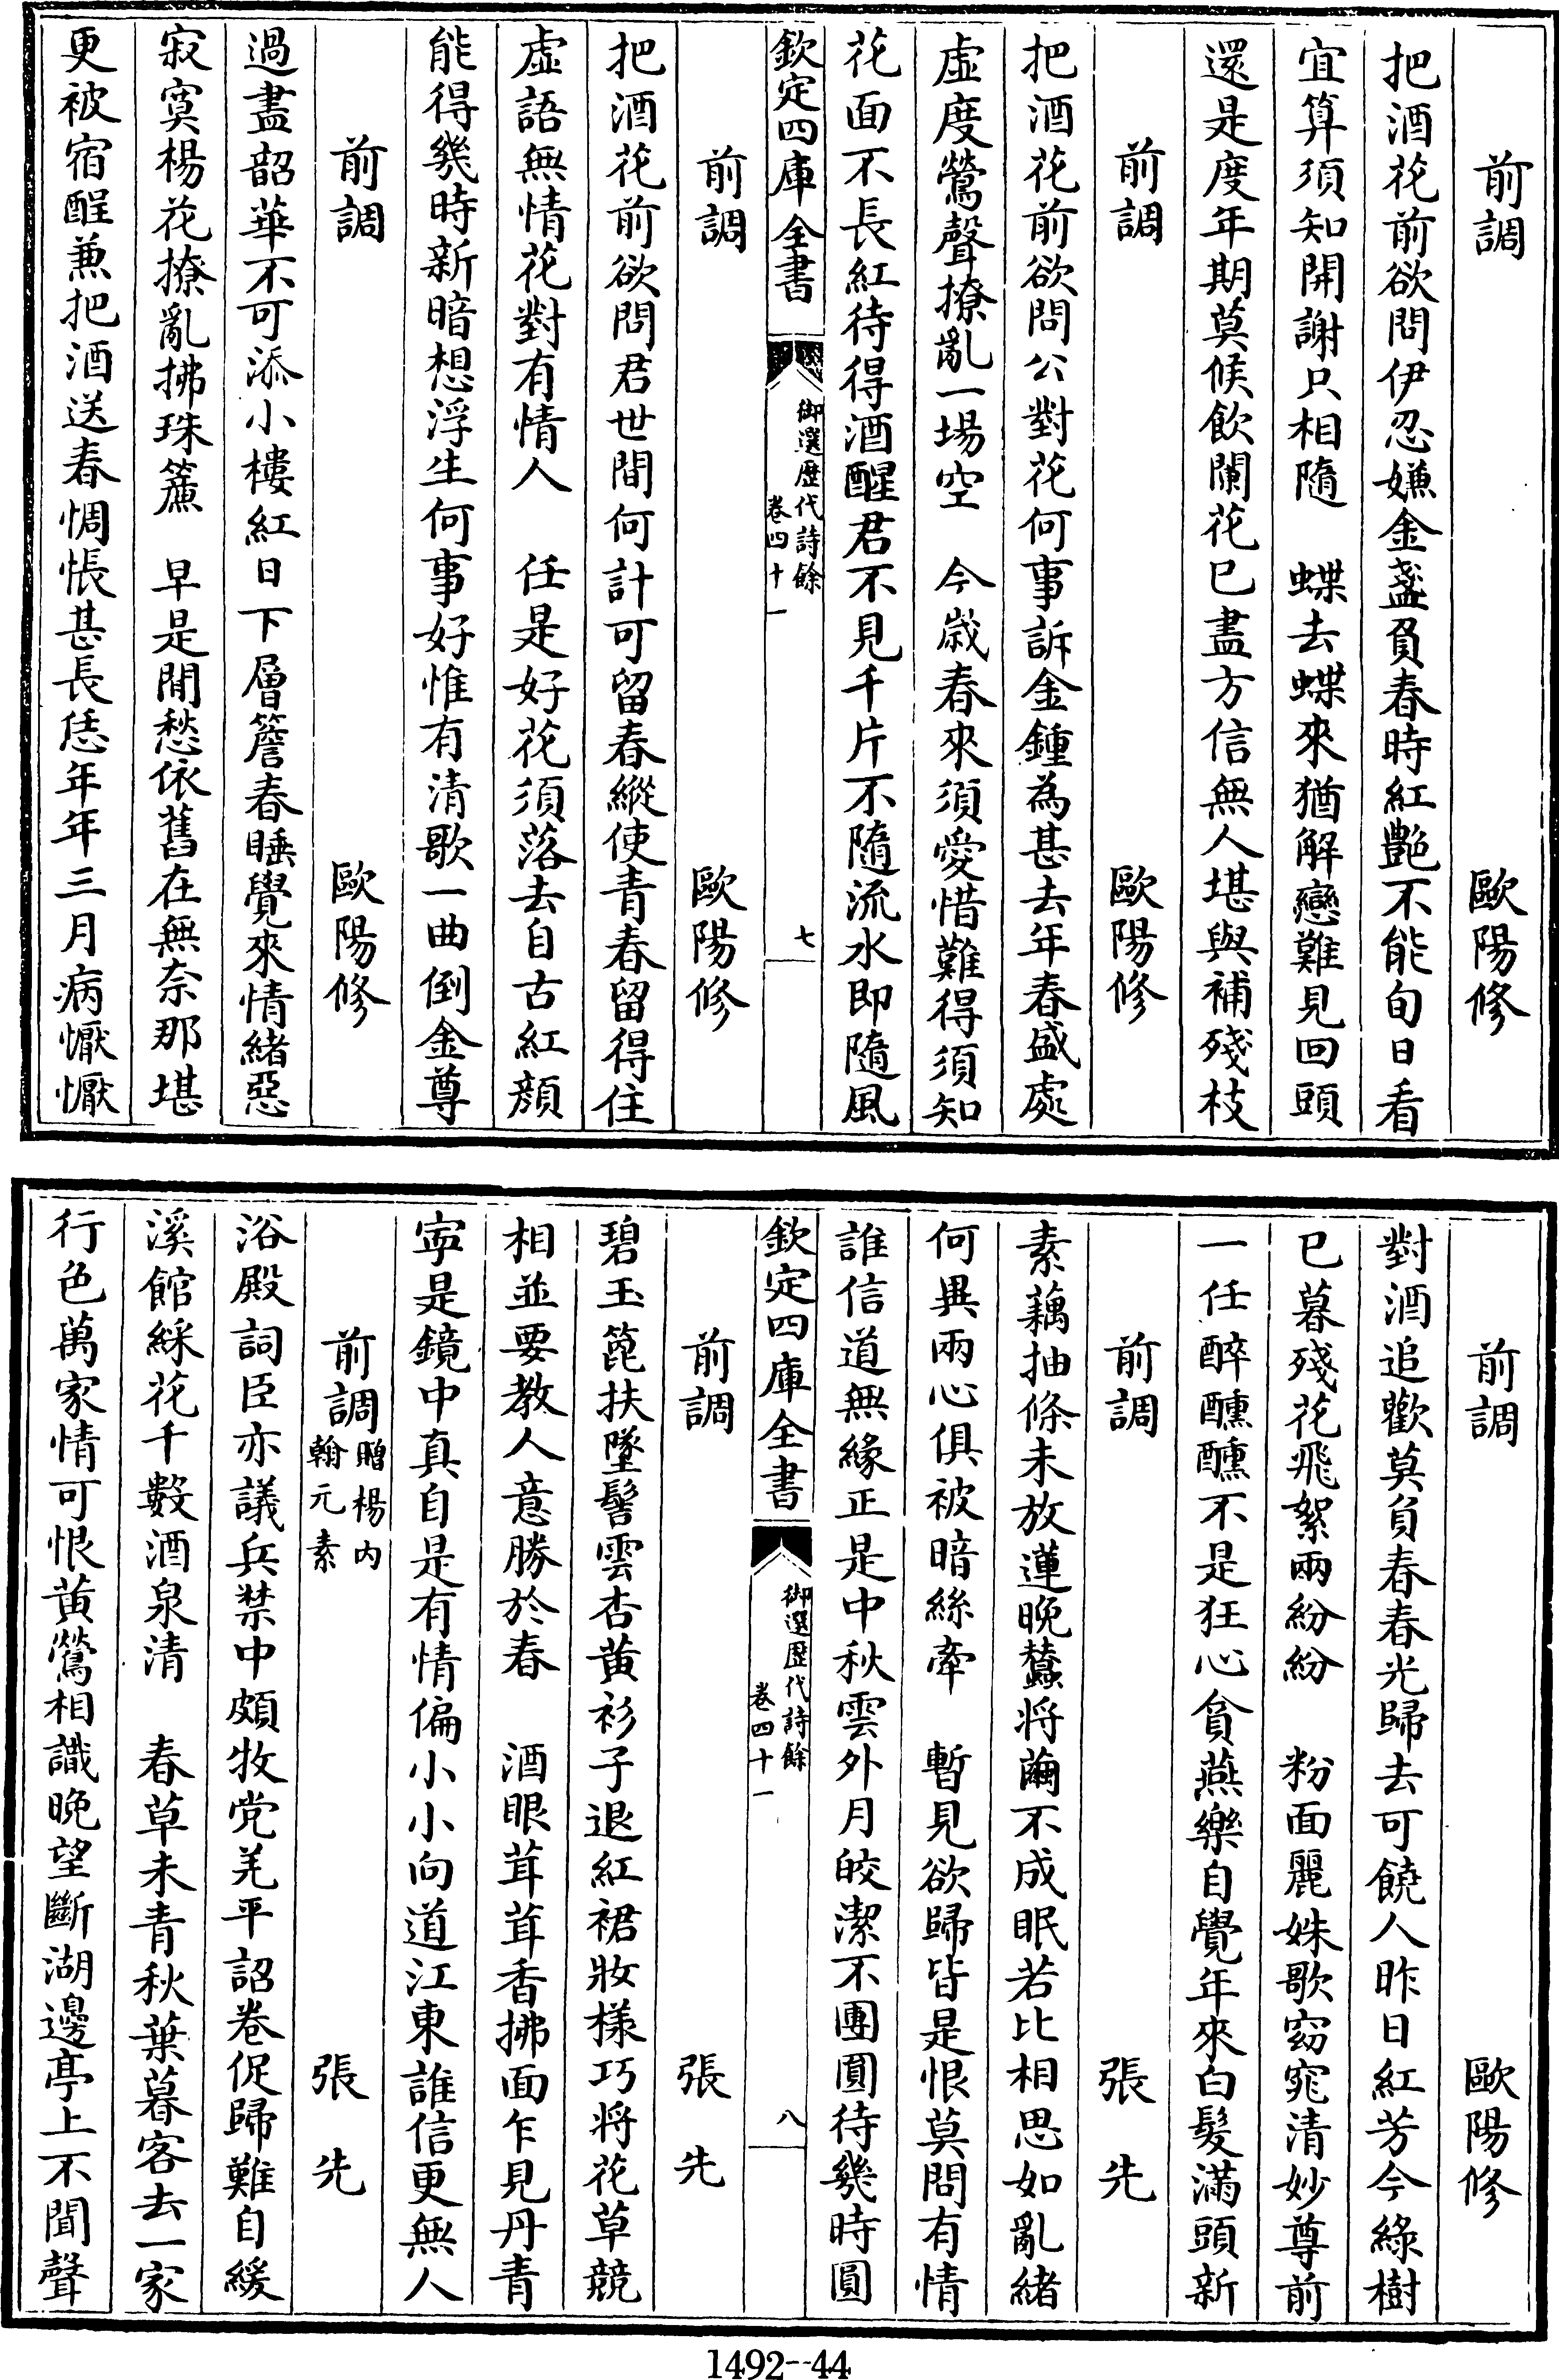 前調　歐陽修
把酒花前欲問伊忍嫌金盞負春時紅艷不能旬日看
宜算須知開謝只相隨　蝶去蝶來猶解戀難見回頭
還是度年期莫候飲闌花已盡方信無人堪與補殘枝
前調　歐陽修
把酒花前欲問公對花何事訴金鍾為甚去年春盛處
虛度鶯聲撩亂一場空　今歲春來須愛惜難得須知
花面不長紅待得酒醒君不見千片不隨流水即隨風
欽定四庫全書
御選歷代詩餘
卷四十一
七
前調　歐陽修
把酒花前欲問君世間何計可留春縱使青春留得住
虛語無情花對有情人　任是好花須落去自古紅顏
能得幾時新暗想浮生何事好惟有清歌一曲倒金尊
前調　歐陽修
過盡韶華不可添小樓紅日下層簷春睡覺來情緒惡
寂寞楊花撩亂拂珠簾　早是閒愁依舊在無奈那堪
更被宿酲兼把酒送春惆悵甚長恁年年三月病懨懨
前調　歐陽修
對酒追歡莫負春春光歸去可饒人昨日紅芳今綠樹
已暮殘花飛絮兩紛紛　粉面麗姝歌窈窕清妙尊前
一任醉醺醺不是狂心貪燕樂自覺年來白髮滿頭新
前調　張先
素藕抽條未放蓮晚蠶將繭不成眠若比相思如亂緒
何異兩心俱被暗絲牽　暫見欲歸皆是恨莫問有情
誰信道無緣正是中秋雲外月皎潔不團圓待幾時圓
欽定四庫全書
御選歷代詩餘
卷四十一
八
前調　張先
碧玉篦扶墜髻雲杏黃衫子退紅裙妝樣巧將花草競
相並要教人意勝於春　酒眼茸茸香拂面乍見丹青
寧是鏡中真自是有情偏小小向道江東誰信更無人
前調贈楊內翰元素　張先
浴殿詞臣亦議兵禁中頗牧党羌平詔卷促歸難自緩
溪館綵花千數酒泉清　春草未青秋葉暮客去一家
行色萬家情可恨黃鶯相識晚望斷湖邊亭上不聞聲
1492--44